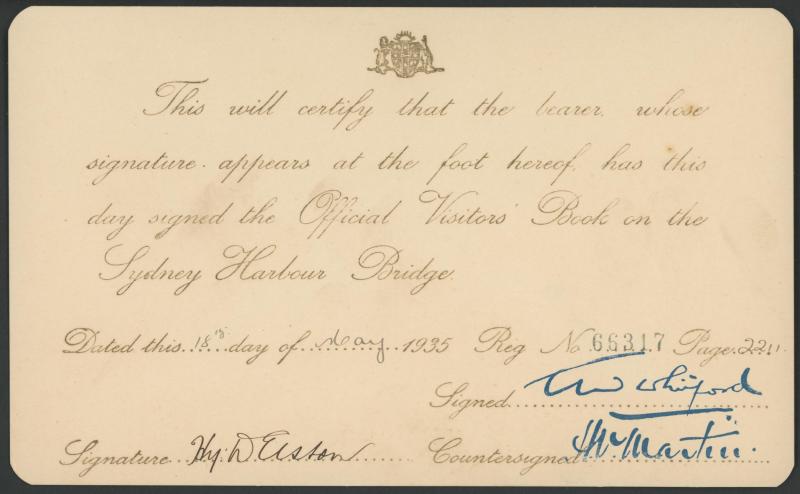 This will certify that the bearer, whose
signature appears at the foot hereof, has this
day signed the Official Visitors' Book on the
Sydney Harbour Bridge.
Dated this 18th day of May 1935 Reg No 66317 Page 2211
Signed Whitford
Signature Hy. D. Elston Countersigned Martin